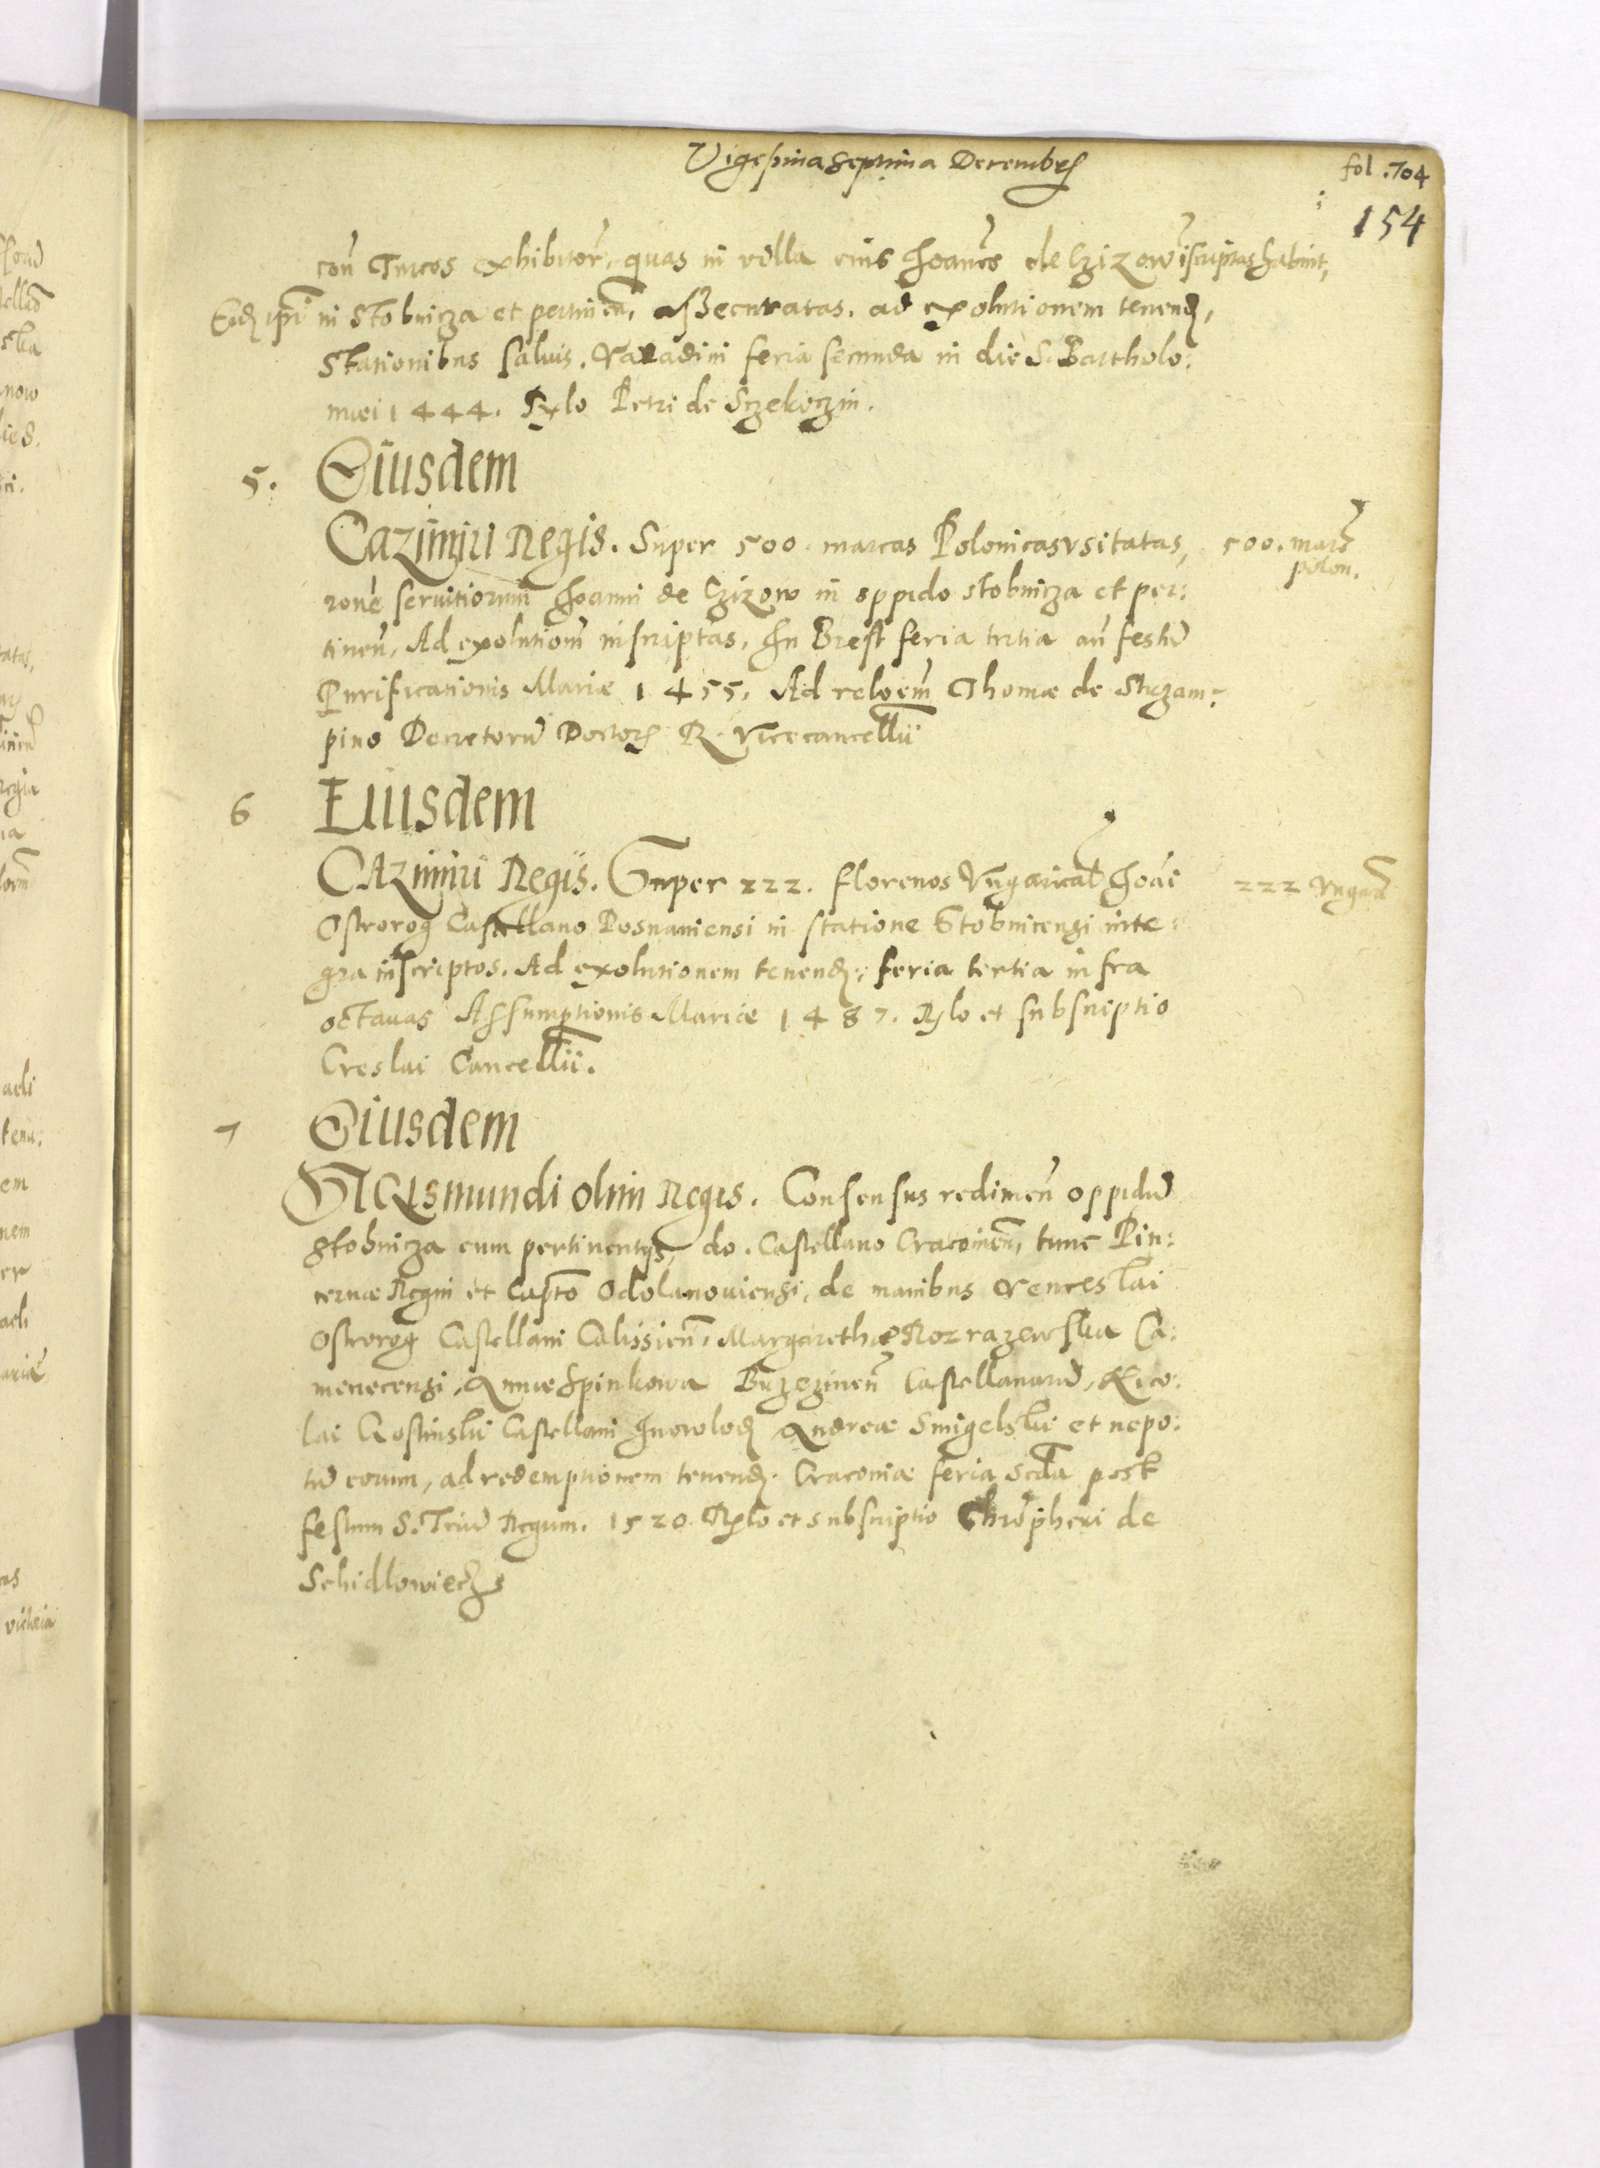 Vigesima septima Decembris
fol. 704
154
con̄ Turcos exhibitor̄, quas in villa eius Joan̄es de Czizow īscriptas habuit,
Eid. ip̄i in Stobnicza et pertinen̄, assecuratas. ad exolutionem tenend,
Stationibus saluis. Varadini feria secunda in die S. Bartholo:
maei 1444. Rx̄lo Petri de Sczekoczin.
5. Eiusdem
Cazimiri Regis. Super 500. marcas Polonicas vsitatas,
500. marc̄
polon.
rōne seruitiorum Joanni de Czizow in oppido stobnicza et per:
tinen̄, Ad exolutionē inscriptas, In Brest feria tertia an̄ festū
Purificationis Mariae 1455. Ad reloem̄ Thomae de Strzam:
pino Decretorū Doctoris R. Vicecancellii
6 Eiusdem
Cazimiri Regis. Super 222. florenos Vngaricaĺ Joāi
222 Vngar̄
Ostrorog Castellano Posnaniensi in statione Stobnicensi inte:
gra inscriptos. Ad exolutionem tenend: feria tertia infra
octauas Assumptionis Mariae 1487. Rx̄lo et subscriptio
Creslai Cancellii.
7 Eiusdem
Sigismundi olim Regis. Consensus redimen̄ oppidū
Stobnicza cum pertinentijs, do. Castellano Cracouien̄, tunc Pin:
cernae Regni et Capto Odolanouiensi, de manibus Venceslai
Ostrorog Castellani Calissien̄. Margarethae Rozrazewska Ca:
menecensi, Annae Spinkowa Brzezinen̄ Castellanarū, Nico:
lai Gostinski Castellani Juowlod Andreae Smigelski et nepo:
tū eorum, ad redemptionem tenend. Cracouiae feria Scda post
festum S. Triū Regum. 1520 Rx̄lo et subscriptio Chrōpheri de
Schidlowiecz